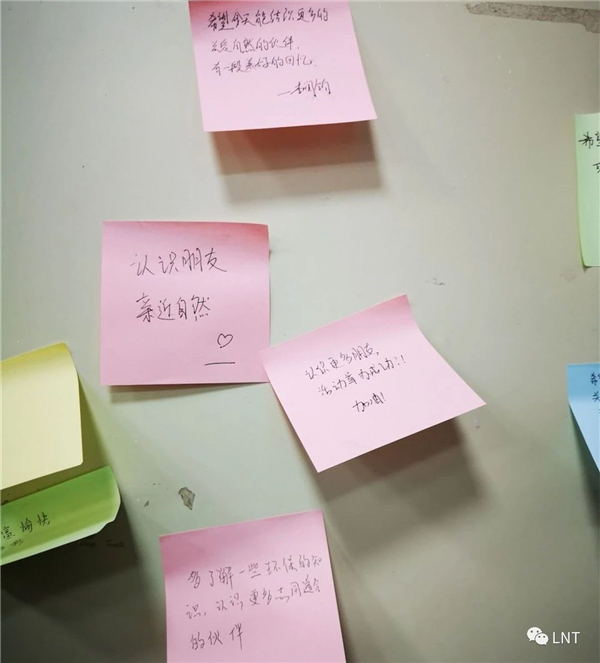 希望今天能结识更多的
关爱自然的伙伴,
有一段美好的回忆.
希望
认识朋友
亲近自然
认识更多朋友,
活动举办成功!!
加油!
希
关
愉快
多了解一些环保的知
识,认识更多志同道合
的伙伴
LNT